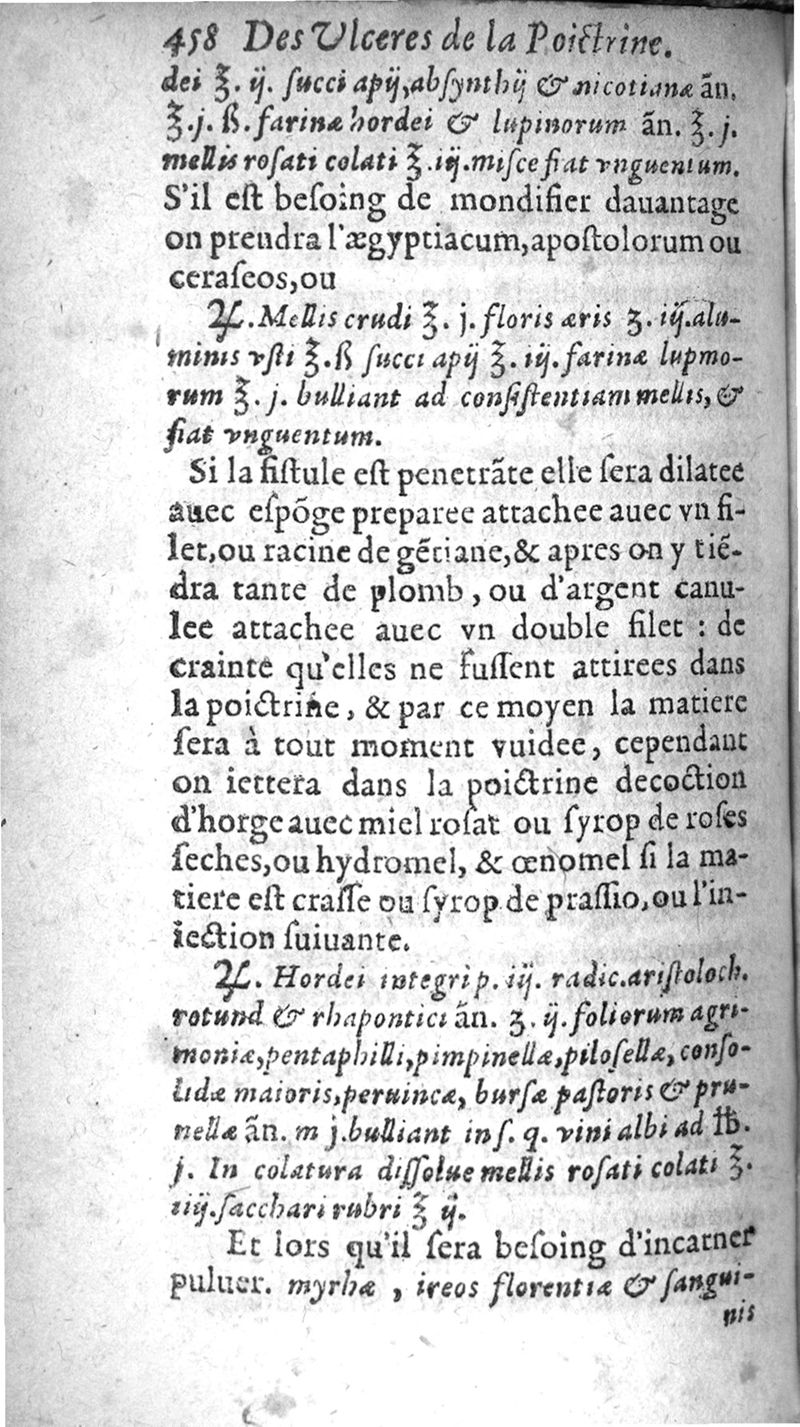 458 Des Vlceres de la Poictrine.
dei ℥. ij. ſucci apij, abſynthij & nicotianæ añ.
℥. j. ß. farinæ hordei & lupinorum añ. ℥. j.
mellis roſati colati ℥. iij. miſce fiat vnguentum.
S'il eſt beſoing de mondifier dauantage
on prendra l'ægyptiacum, apoſtolorum ou
ceraſeos, ou
♃. Mellis crudi ℥. j. floris æris ʒ. iij. alu-
minis vſti ℥. ß ſucci apij ℥. iij. farinæ lupino-
rum ℥. j. bulliant ad conſiſtentiam mellis, &
fiat vnguentum.
Si la fiſtule eſt penetrãte elle ſera dilatee
auec eſpõge preparee attachee auec vn fi-
let, ou racine de gẽtiane, & apres on y tiẽ-
dra tante de plomb, ou d'argent canu-
lee attachee auec vn double filet : de
crainte qu'elles ne fuſſent attirees dans
la poictrine, & par ce moyen la matiere
ſera à tout moment vuidee, cependant
on iettera dans la poictrine decoction
d'horge auec miel roſat ou ſyrop de roſes
ſeches, ou hydromel, & œnomel ſi la ma-
tiere eſt craſſe ou ſyrop de praſſio, ou l'in-
iection ſuiuante.
♃. Hordei integri p. iij. radic. ariſtoloch.
rotund & rhapontici añ. ʒ. ij. foliorum agri-
moniæ, pentaphilli, pimpinellæ, piloſellæ, conſo-
lidæ maioris, peruincæ, burſæ paſtoris & pru-
nellæ añ. m j. bulliant in ſ. q. vini albi ad ℔.
j. In colatura diſſolue mellis roſati colati ℥.
iiij. ſacchari rubri ℥ ij.
Et lors qu'il ſera beſoing d'incarner
puluer. myrhæ, ireos florentiæ & ſangui-
nis